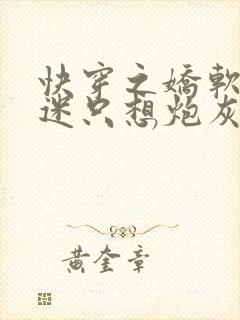 快穿之嬌軟
迷只想炮灰
黃奎章